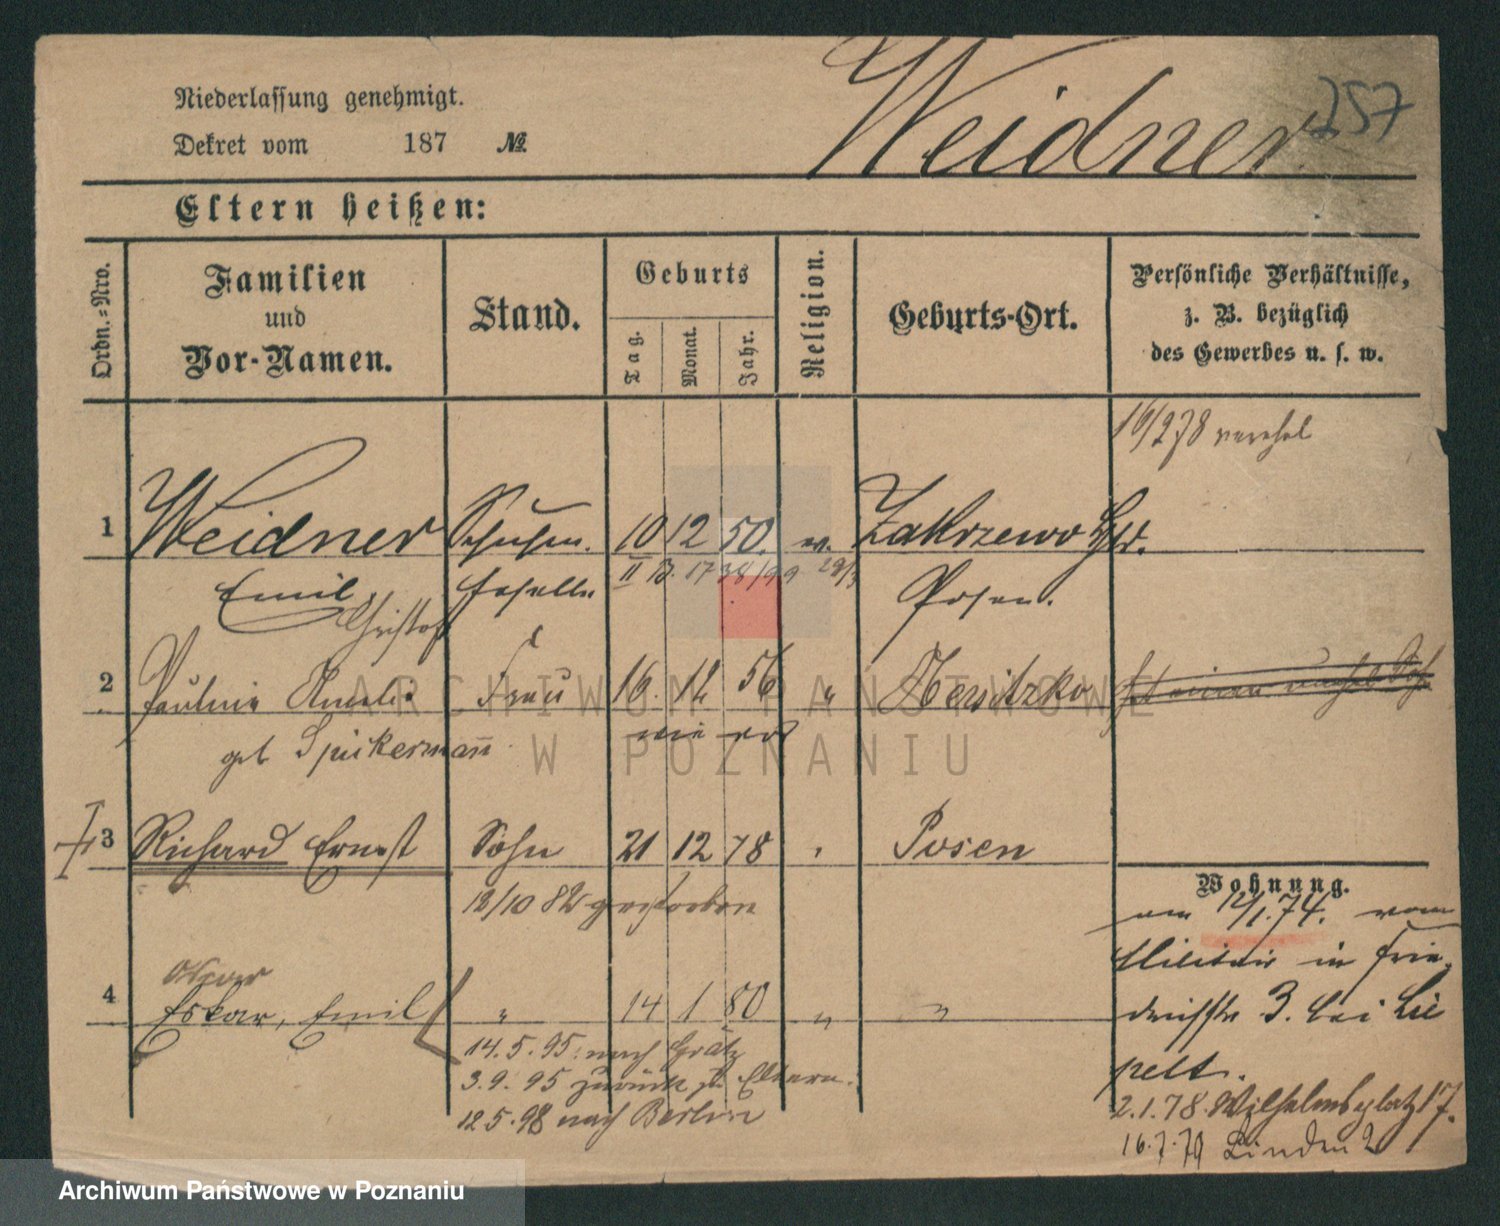 Niederlassung genehmigt.
Dekret vom 187 №
Weidner 257
Eltern heißen:
Ordn.=Nro.
Familien
und
Vor-Namen.
Stand.
Geburts
Tag.
Monat.
Jahr.
Religion.
Geburts-Ort.
Persönliche Verhältnisse,
z. B. bezüglich
des Gewerbes u. s. w.
16/2 78 verehel
1 Weidner Schuhm. 10 12 50. ev. Zakrzewo
Emil, Geselle Posen.
Christof
2 Pauline Amalie Frau 16. 12 56 " Jersitzko
geb Spickermañ wie er
3 Richard Ernst Sohn 21 12 78 Posen
12/10 82 gestorben
Wohnung.
am 12/1.74. vom
Militair in Frie
drichstr 3. bei Lie
pelt.
2.1.78. Wilhelmsplatz 17.
16.7.79 Linden 2
Oscar
4 Eskar, Emil " 14 1 80 " "
14.5.95. nach Grätz
3.9.95 zurück z. Eltern.
12.5.98 nach Berlin
ARCHIWUM PAŃSTWOWE
W POZNANIU
Archiwum Państwowe w Poznaniu